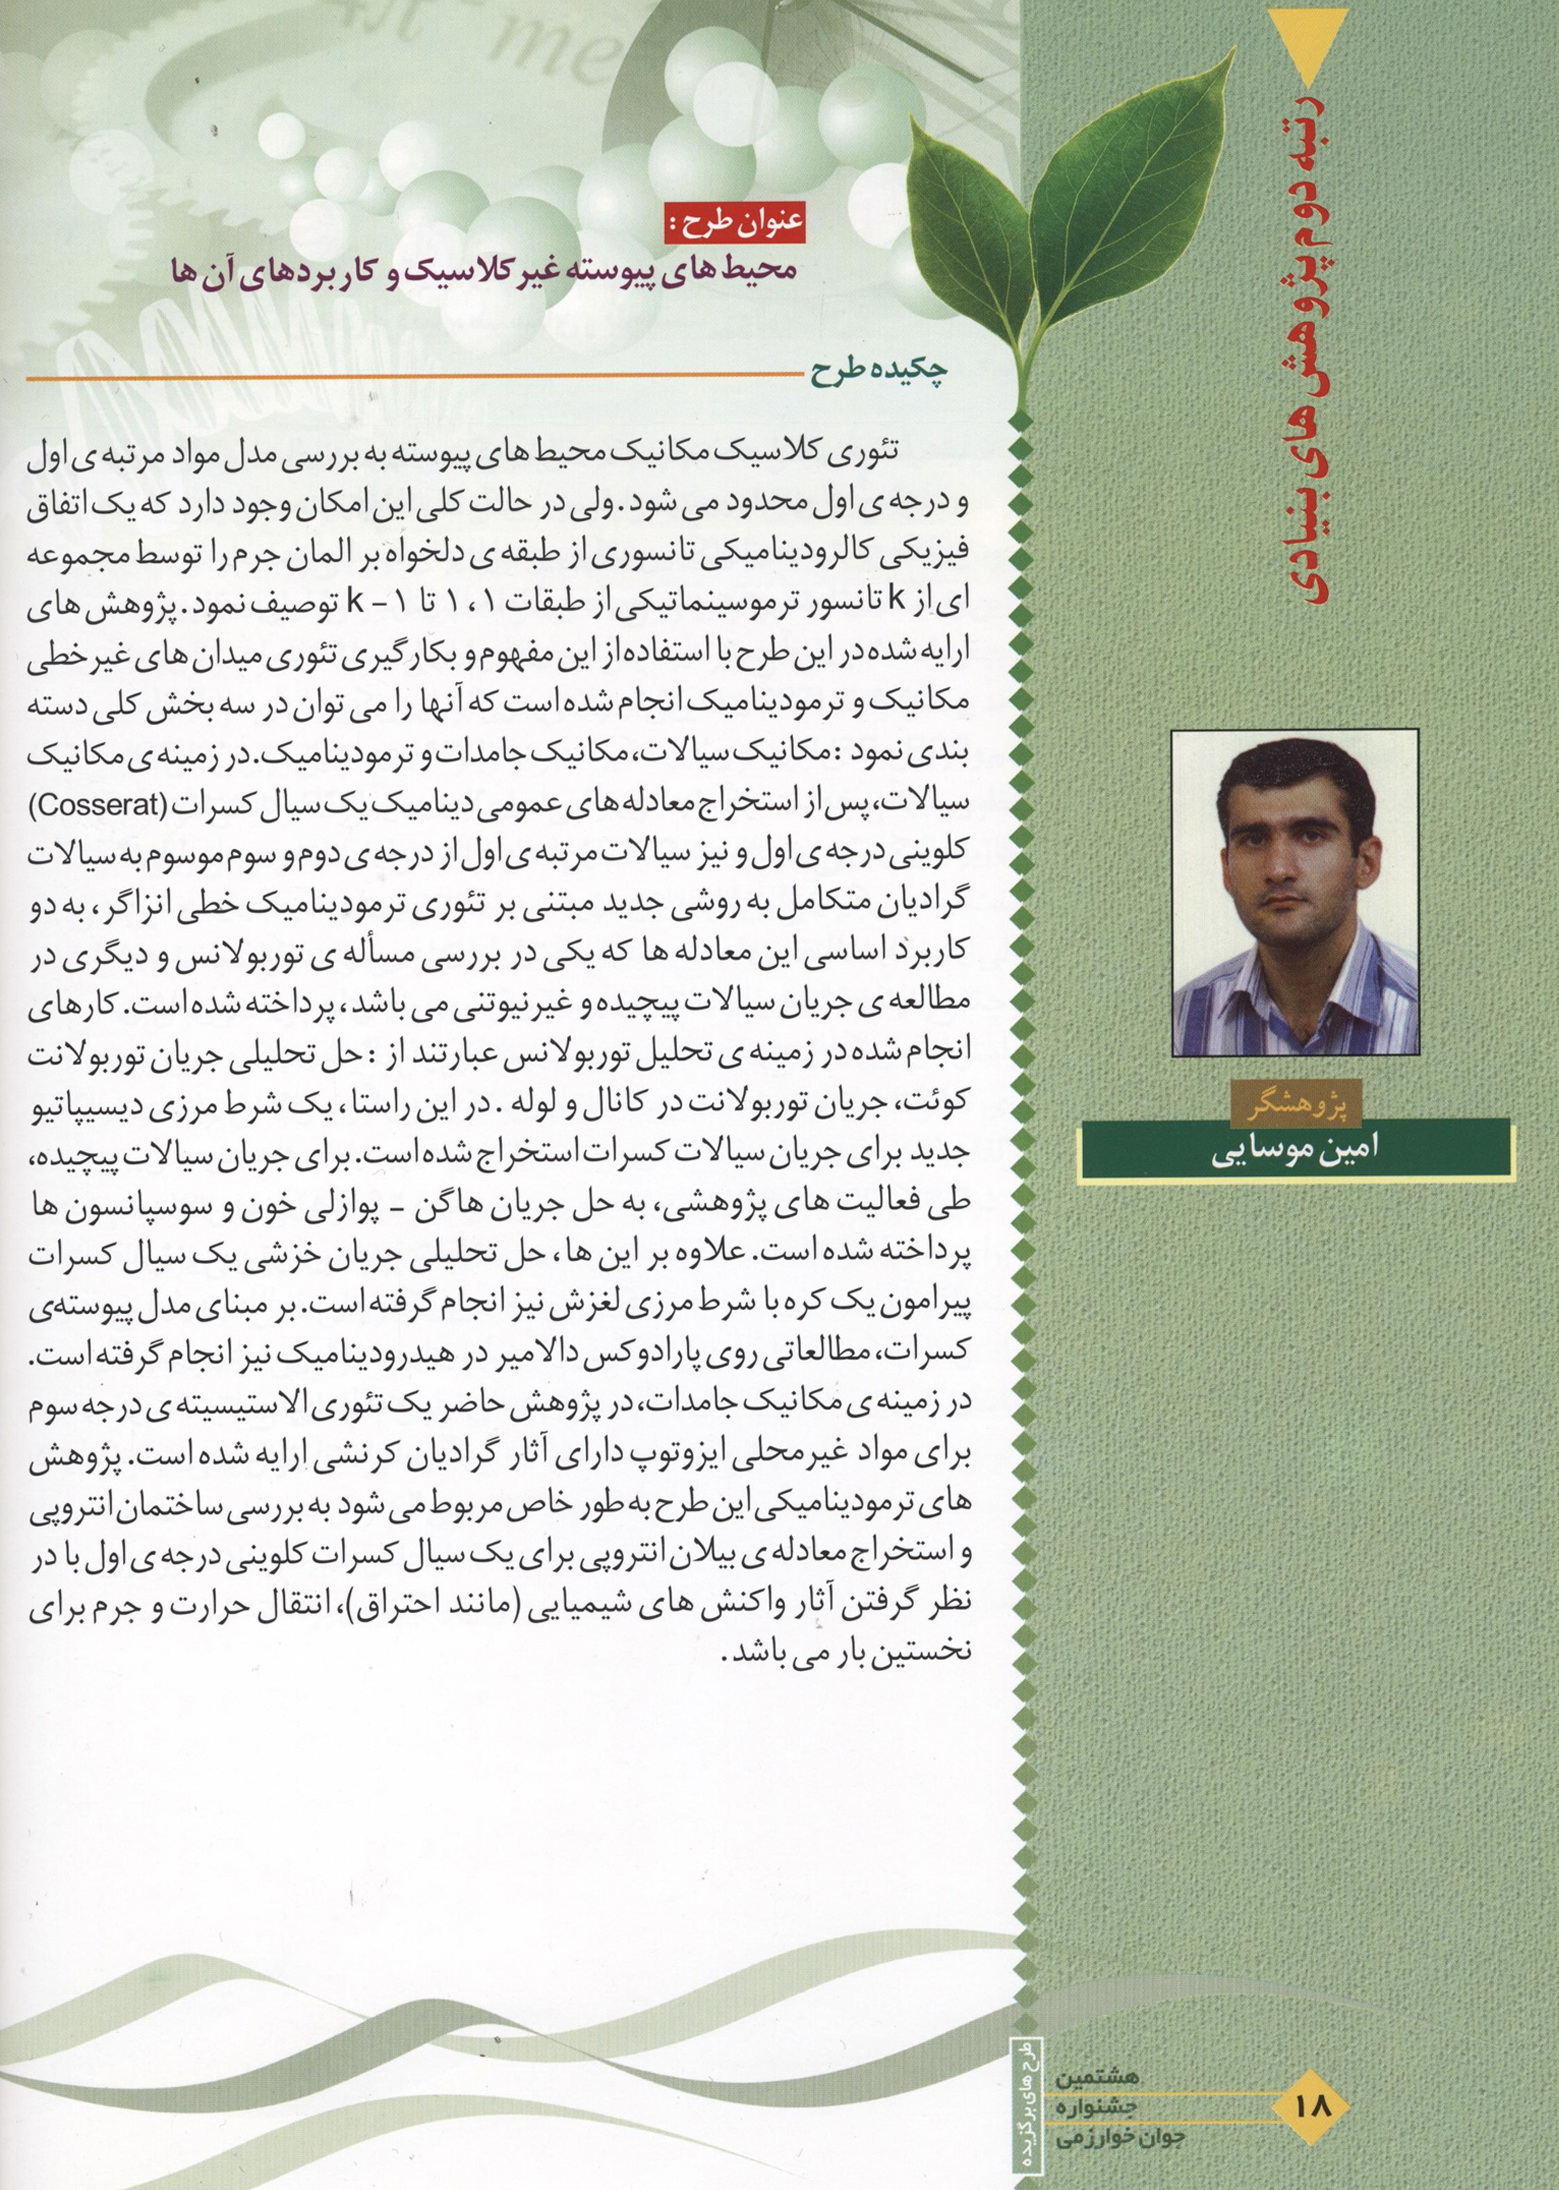 رتبه دوم پژوهش های بنیادی
عنوان طرح :
محیط های پیوسته غیر کلاسیک و کاربردهای آن ها
چکیده طرح
تئوری کلاسیک مکانیک محیط های پیوسته به بررسی مدل مواد مرتبه ی اول
و درجه ی اول محدود می شود. ولی در حالت کلی این امکان وجود دارد که یک اتفاق
فیزیکی کالرودینامیکی تانسوری از طبقه ی دلخواه بر المان جرم را توسط مجموعه
ای از k تانسور ترموسینماتیکی از طبقات ۱، ۱ تا ۱ - k توصیف نمود. پژوهش های
ارایه شده در این طرح با استفاده از این مفهوم و بکارگیری تئوری میدان های غیرخطی
مکانیک و ترمودینامیک انجام شده است که آنها را می توان در سه بخش کلی دسته
بندی نمود : مکانیک سیالات، مکانیک جامدات و ترمودینامیک. در زمینه ی مکانیک
سیالات، پس از استخراج معادله های عمومی دینامیک یک سیال کسرات (Cosserat)
کلوینی درجه ی اول و نیز سیالات مرتبه ی اول از درجه ی دوم و سوم موسوم به سیالات
گرادیان متکامل به روشی جدید مبتنی بر تئوری ترمودینامیک خطی انزاگر، به دو
کاربرد اساسی این معادله ها که یکی در بررسی مسأله ی توربولانس و دیگری در
مطالعه ی جریان سیالات پیچیده و غیرنیوتنی می باشد، پرداخته شده است. کارهای
انجام شده در زمینه ی تحلیل توربولانس عبارتند از : حل تحلیلی جریان توربولانت
کوئت، جریان توربولانت در کانال و لوله . در این راستا، یک شرط مرزی دیسیپاتیو
جدید برای جریان سیالات کسرات استخراج شده است. برای جریان سیالات پیچیده،
طی فعالیت های پژوهشی، به حل جریان هاگن - پوازلی خون و سوسپانسون ها
پرداخته شده است. علاوه بر این ها، حل تحلیلی جریان خزشی یک سیال کسرات
پیرامون یک کره با شرط مرزی لغزش نیز انجام گرفته است. بر مبنای مدل پیوسته‌ی
کسرات، مطالعاتی روی پارادوکس دالامیر در هیدرودینامیک نیز انجام گرفته است.
در زمینه ی مکانیک جامدات، در پژوهش حاضر یک تئوری الاستیسیته ی درجه سوم
برای مواد غیرمحلی ایزوتوپ دارای آثار گرادیان کرنشی ارایه شده است. پژوهش
های ترمودینامیکی این طرح به طور خاص مربوط می شود به بررسی ساختمان انتروپی
و استخراج معادله ی بیلان انتروپی برای یک سیال کسرات کلوینی درجه ی اول با در
نظر گرفتن آثار واکنش های شیمیایی (مانند احتراق)، انتقال حرارت و جرم برای
نخستین بار می باشد.
پژوهشگر
امین موسایی
طرح های برگزیده
هشتمین
جشنواره
جوان خوارزمی
۱۸